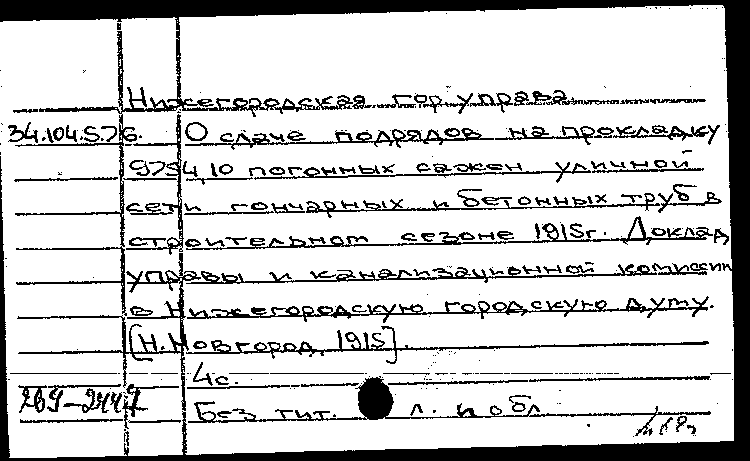 Нижегородская гор. управа
34.104.5.76. О сдаче подрядов на прокладку
9754,10 погонных сажен уличной
сети гончарных и бетонных труб в
строительном сезоне 1915г. Доклад
управы и канализационной комиссии
в Нижегородскую городскую думу.
[Н.Новгород, 1915].
4с.
269-2447
Без тит. л. и обл.